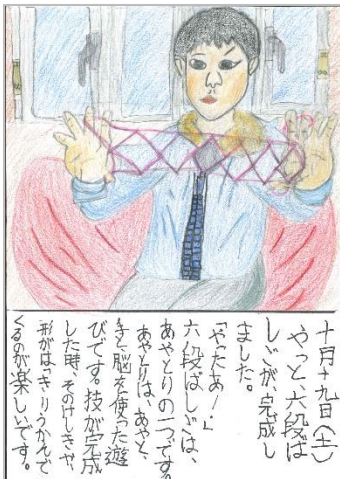 十月十九日(土)
やっと、六段ば
しごが、完成し
ました。
「やったあー!」
六段ばしごは、
あやとりの一つです。
あやとりは、あやと、
手と脳を使った遊
びです。技が完成
した時、そのけしきや、
形がはっきりうかんで
くるのが楽しいです。